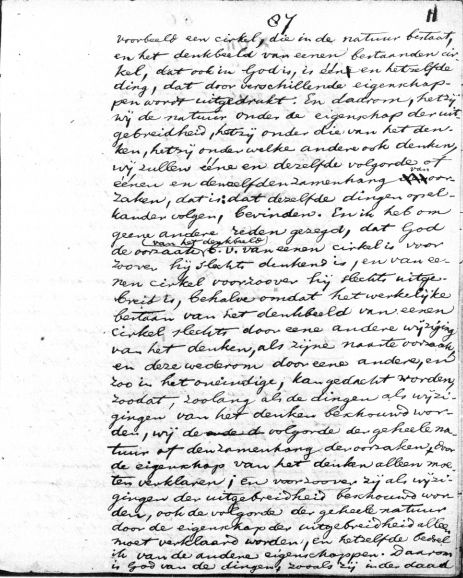 87
voorbeeld een cirkel, die in de natuur bestaat,
en het denkbeeld van eenen bestaanden cir-
kel, dat ook in God is, is één en hetzelfde
ding, dat door verschillende eigenschap-
pen wordt uitgedrukt. En daarom, hetzij
wij de natuur onder de eigenschap der uit
gebreidheid, hetzij onder die van het den-
ken, hetzij onder welke andere ook denken,
wij zullen ééne en dezelfde volgorde of
éénen en denzelfden zamenhang van oor-
zaken, dat is: dat dezelfde dingen op el-
kander volgen, bevinden. En ik heb om
geene andere reden gezegd, dat God
de oorzaak (van het denkbeeld) b. v. van eenen cirkel is voor
zoover hij slechts denkend is, en van ee-
nen cirkel voorzoover hij slechts uitge-
breid is, behalve omdat het werkelijke
bestaan van het denkbeeld van eenen
cirkel slechts door eene andere wijziging
van het denken, als zijne naaste oorzaak,
en deze wederom door eene andere, en
zoo in het oneindige, kan gedacht worden,
zoodat, zoolang als de dingen als wijzi-
gingen van het denken beschouwd wor-
den, wij de volgorde der geheele na-
tuur of den zamenhang der oorzaken door
de eigenschap van het denken alleen moe-
ten verklaren; En voorzoover zij als wijzi-
gingen der uitgebreidheid beschouwd wor-
den, ook de volgorde der geheele natuur
door de eigenschap der uitgebreidheid alleen
moet verklaard worden, en hetzelfde bedoel
ik van de andere eigenschappen. Daarom
is God van de dingen, zooals zij inderdaad